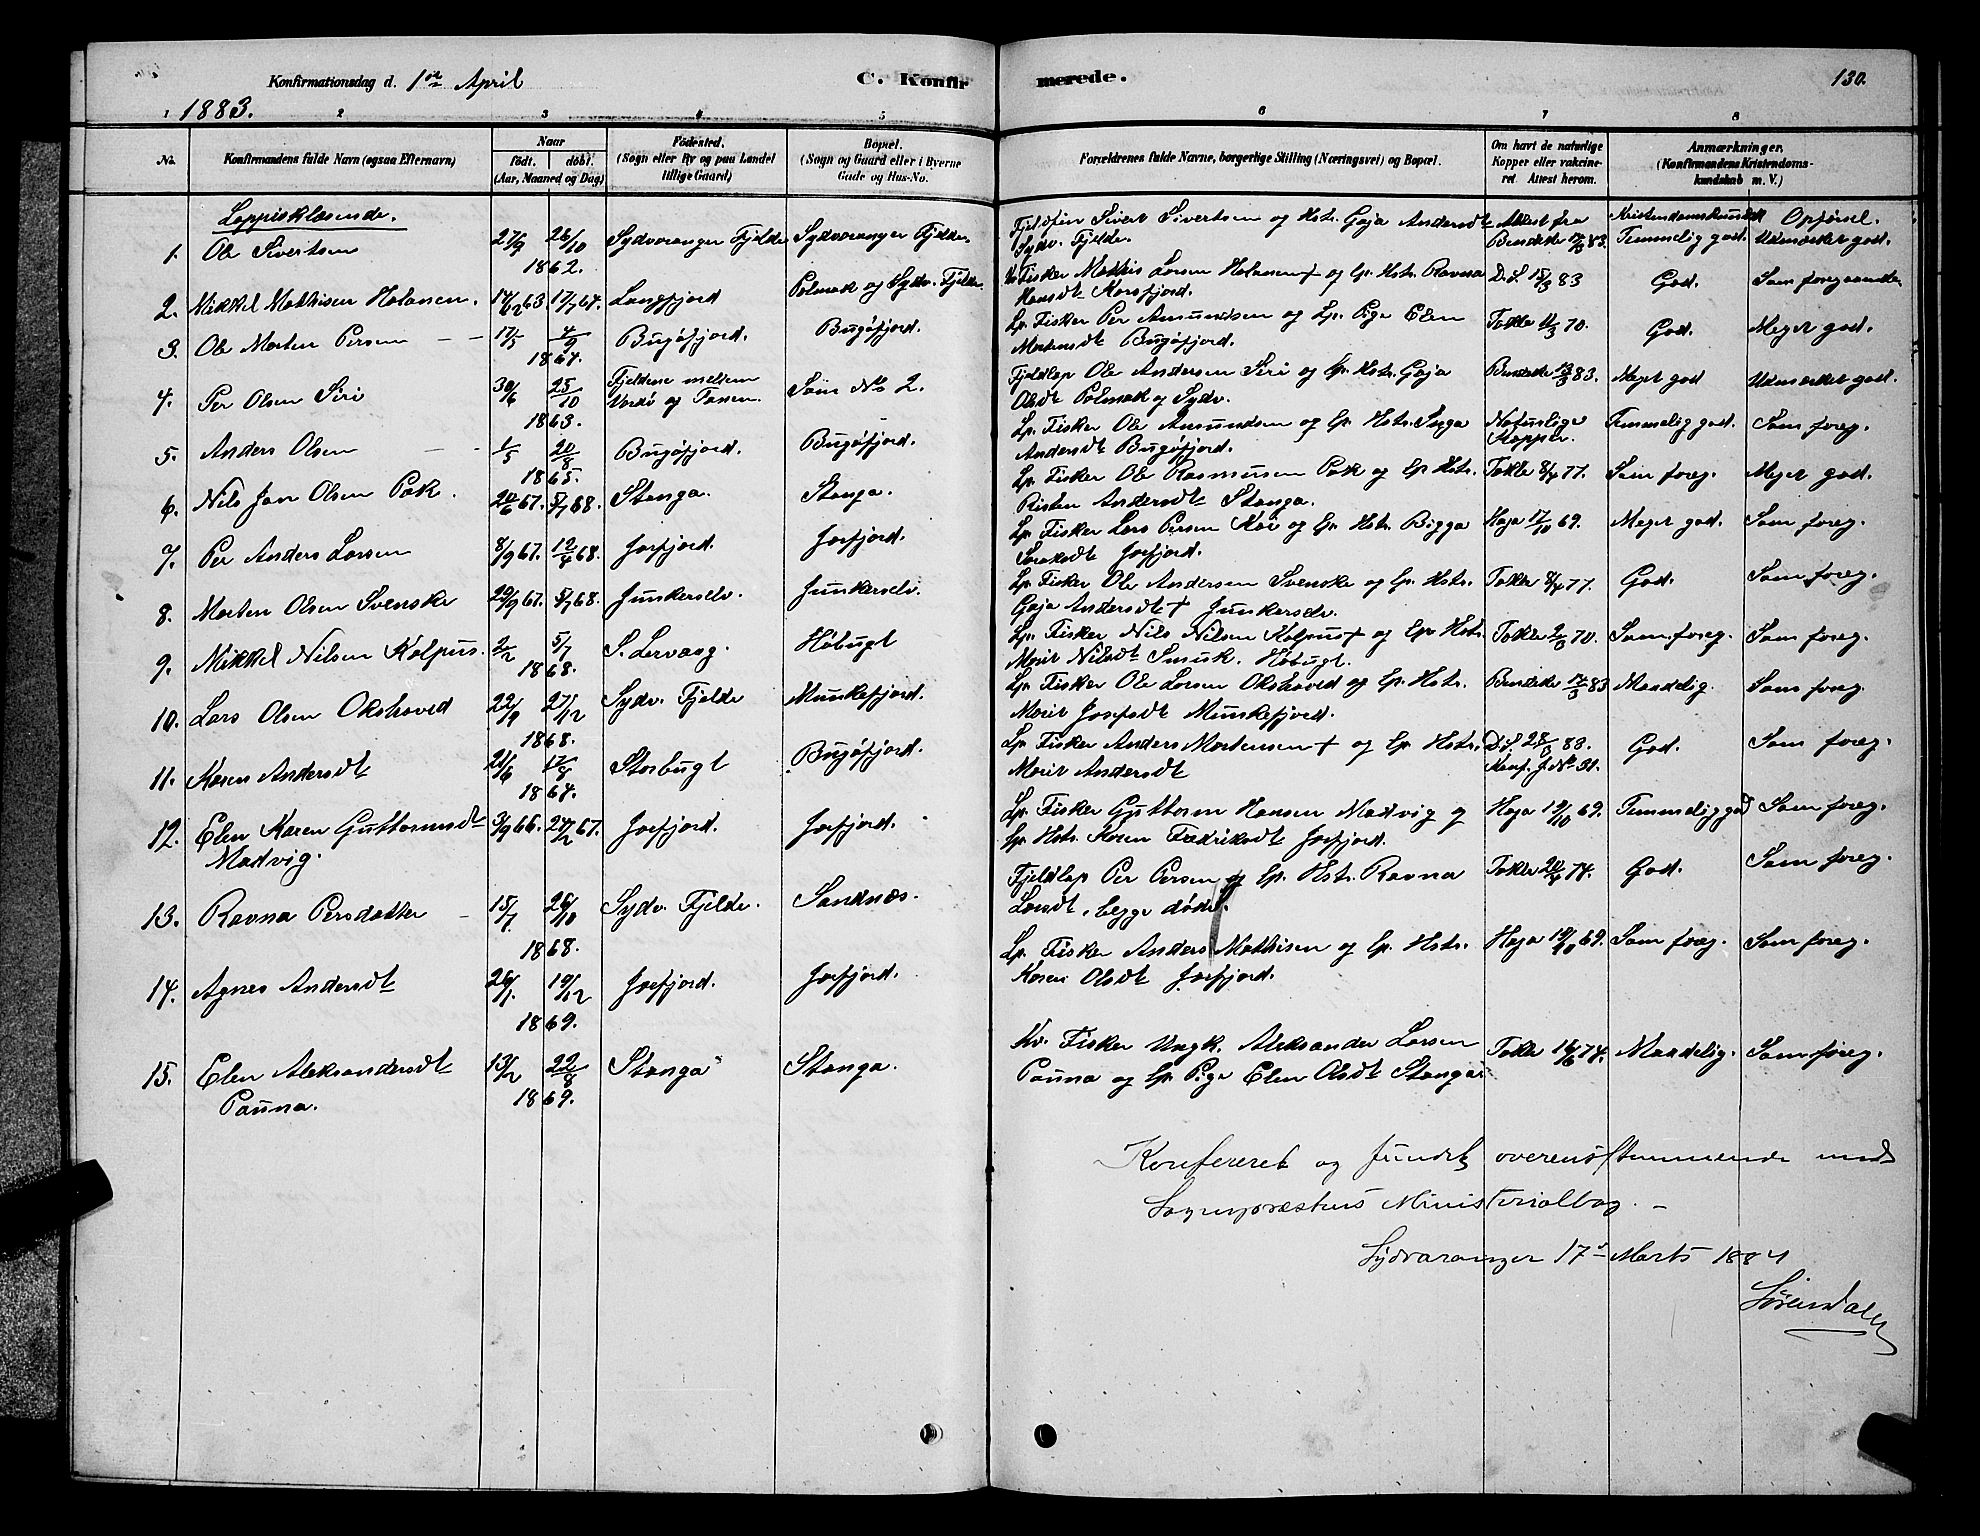 Konfirmationsdag d. 1ste April
1883.
C. Konfir
merede.
130.
1 2 3 4 5 6 7 8
No.
Konfirmandens fulde Navn (ogsaa Efternavn)
Naar
födt. döbt.
(Aar, Maaned og Dag)
Födested.
(Sogn eller By og paa Landet
tillige Gaard)
Bopæl.
(Sogn og Gaard eller i Byerne
Gade og Hus-No.
Forældrenes fulde Navne, borgerlige Stilling (Næringsvei) og Bopæl.
Om havt de naturlige
Kopper eller vakcine-
ret. Attest herom.
Anmærkninger,
(Konfirmandens Kristendoms-
kundskab m. V.)
Lappisklæsende.
Kristendomskundsk Opførsel.
1. Ole Sivertsen 27/9 26/10 1862. Sydvaranger Fjelde Sydvaranger Fjelde
Fjeldfin Sivert Sivertsen og Hstr. Gaja Andersdt Attest fra Temmelig god. Udmærket god.
Sydv. Fjelde. 83.
2. Mikkel Mathisen Halonen. 14/12 63 17/7 64. Langfjord Polmak og Sydv. Fjelde
Fisker Mathis Larsen Halonen + og Lp. Hstr. Ravna D.S. 15/3 83 God. Som foregaaende
Hansdt Korsfjord.
3. Ole Morten Persen 17/5 4/9 1864. Bugøfjord. Bugøfjord.
Lp. Fisker Per Amundsen og Lp. Pige Elen Takle 11/3 70. God. Meget god.
Mortensdt Bugøfjord.
4. Per Olsen Siri 30/6 25/10 1863. Fjeldene mellem
Vardø og Tanen. Som No 2.
Fjeldlap Ole Andersen Siri og Lp. Hstr. Gaja 83. Meget god Udmærket god.
Olsdt Polmak og Sydv.
5. Anders Olsen 1/5 20/8 1865. Bugøfjord. Bugøfjord.
Lp. Fisker Ole Amundsen og Lp. Hstr. Inga Naturlige Temmelig god. Som foreg.
Andersdt Bugøfjord. Kopper.
6. Nils Jan Olsen Pak. 24/6 67. 5/7 68. Stanga. Stanga.
Lp. Fisker Ole Rasmusen Pak og Lp. Hstr. Takle 8/4 77. Som foreg. Meget god.
Risten Andersdt Stanga.
7. Per Anders Larsen 8/9 67. 12/4 68. Jarfjord. Jarfjord.
Lp. Fisker Lars Persen Koi og Lp. Hstr. Bigga Haja 17/10 69. Meget god. Som foreg.
Jarfjord.
8. Morten Olsen Svenske 29/9 67. 5/7 68. Junkerselv. Junkerselv.
Lp. Fisker Ole Andersen Svenske og Lp. Hstr. Takle 8/4 77. God. Som foreg.
Gaja Andersdt + Junkerselv.
9. Mikkel Nilsen Kalpus. 2/2 5/7 1868. S. Lervaag. Høbugt
Lp. Fisker Nils Nilsen Kalpus + og Lp. Hstr. Takle 70. Som foreg. Som foreg.
Marit Nilsdt Smuk. Høbugt.
10. Lars Olsen Okshoved 22/9 27/12 1868. Sydv. Fjelde Munkefjord.
Lp. Fisker Ole Larsen Okshoved og Lp. Hstr. 83 Maadelig. Som foreg.
Marit Josefsdt Munkefjord.
11. Karen Andersdt 21/6 17/8 1864. Storbugt Bugøfjord.
Lp. Fisker Anders Mortensen + og Lp. Hstr. 83. God. Som foreg.
Marit Andersdt Konf. J. No 31.
12. Elen Karen Guttormsdt
Madvig. 3/9 66. 24/2 67. Jarfjord. Jarfjord.
Lp. Fisker Guttorm Hansen Madvig og Haja 19/10 69. Temmelig god Som foreg.
Lp. Hstr. Karen Fredriksdt Jarfjord.
13. Ravna Persdatter 15/7 26/10 1868. Sydv. Fjelde. Sandnæs.
Fjeldlap Per Persen og Lp. Hstr. Ravna Takle 74. God. Som foreg.
Larsdt, begge døde.
14. Agnes Andersdt 26/1. 19/12 1869. Jarfjord. Jarfjord.
Lp. Fisker Anders Mathisen og Lp. Hstr. Haja 19/10 69. Som foreg. Som foreg.
Karen Olsdt Jarfjord.
15. Elen Aleksandersdt
Pauna. 13/2 22/8 1869. Stanga Stanga.
Kv. Fisker Ungk. Aleksander Larsen Takle 74. Maadelig. Som foreg.
Pauna og Lp. Pige Elen Olsdt Stanga
Konfereret og fundet overensstemmende med
Sognepræstens Ministerialbog. –
Sydvaranger 17de Marts 1884